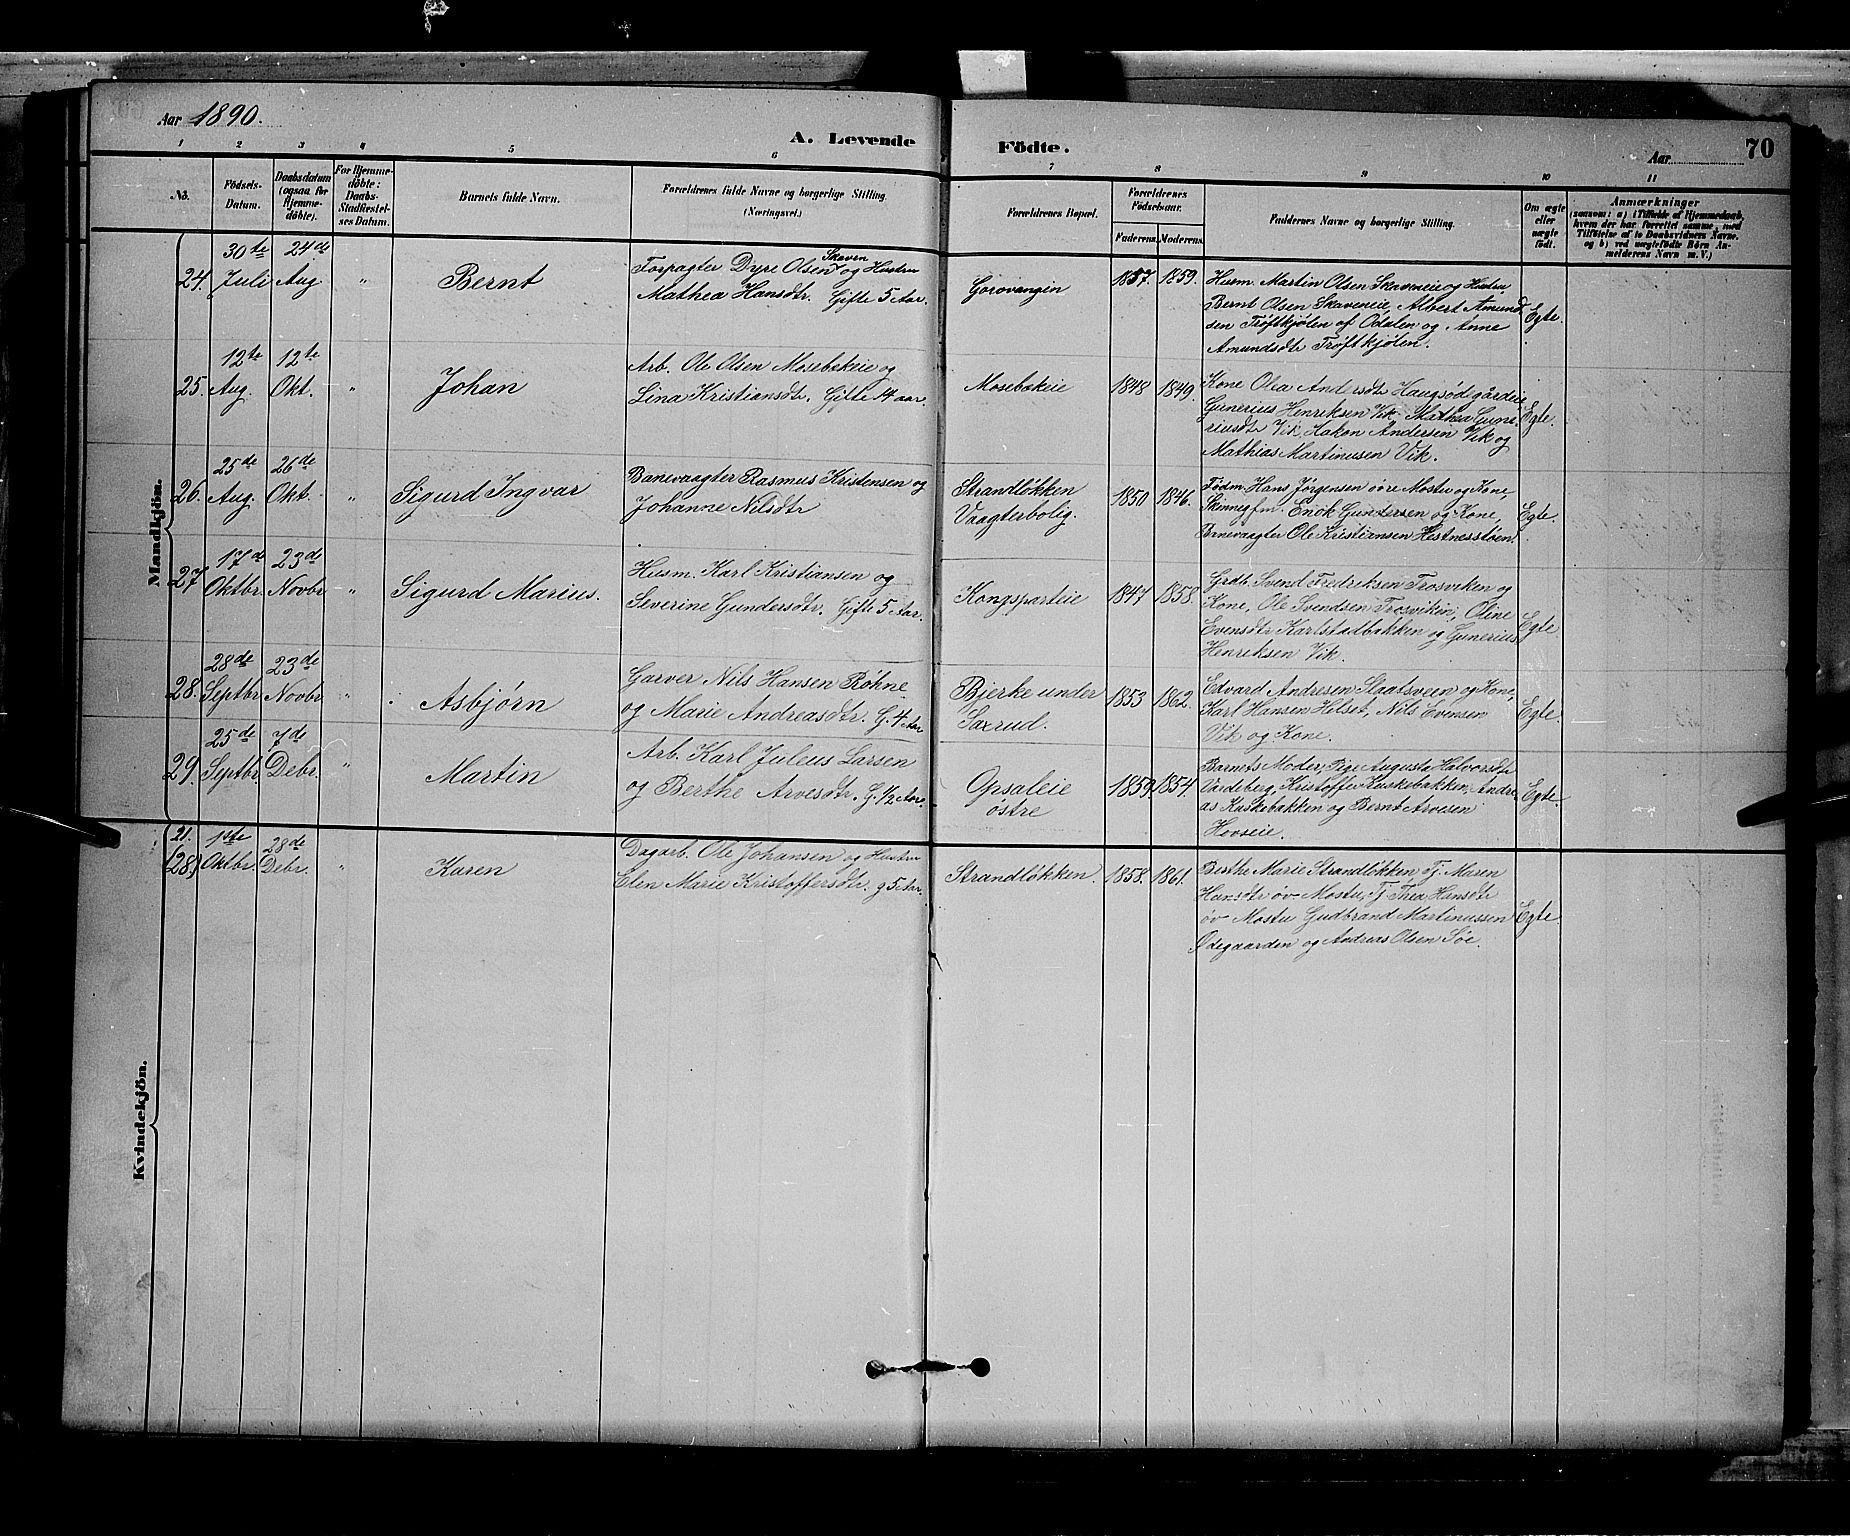 Aar 1890.
A. Levende Födte.
Aar 70
1 2 3 4 5 6 7 8 9 10 11
No.
Födsels-Datum.
Daabsdatum (ogsaa for Hjemme-döbte).
For Hjemme-döbte: Daabs-Stadfæstel-ses Datum.
Barnets fulde Navn.
Forældrenes fulde Navne og borgerlige Stilling.
(Næringsvei.)
Forældrenes Bopæl.
Forældrenes Födselsaar.
Faderens. Moderens.
Faddernes Navne og borgerlige Stilling.
Om ægte eller uægte födt.
Anmærkninger
(saasom: a) i Tilfælde af Hjemmedaab, hvem der har forrettet samme, med Tilföielse af to Daabsvidners Navne, og b) ved uægtefödte Börn An-melderens Navn m. V.)
Mandkjön.
24. 30te Juli 24de Aug. " Bernt
Forpagter Dyre Olsen Skaven og Hustru
Mathea Hansdtr. Gifte 5 Aar.
Gorovangen 1857. 1859.
Husm. Martin Olsen Skaveneie og Hustru,
Bernt Olsen Skaveneie, Albert Amund-
sen Trøftkjølen af Odalen og Anne
Amundsdtr Trøftkjølen.
Egte.
25. 12te Aug. 12te Okt. " Johan
Arb. Ole Olsen Mosebækeie og
Lina Kristiansdtr. Gifte 14 aar.
Mosebækeie 1848 1849.
Kone Olea Andersdtr Haugsødgårdeie
Gunerius Henriksen Vik, Mathea Gune-
riusdtr Vik, Hakon Andersen Vik og
Mathias Martinusen Vik.
Egte.
26. 25de Aug. 26de Okt. " Sigurd Ingvar
Banevaagter Rasmus Kristensen og
Johanne Nilsdtr
Strandløkken
Vaagterbolig. 1850 1846.
Fødm. Hans Jørgensen øvre Mostu og Kone,
Skinnegfm. Enok Gundersen og Kone,
Banevaagter Ole Kristiansen Hestnesstøen.
Egte.
27 17de Oktbr 23de Novbr " Sigurd Marius.
Husm. Karl Kristiansen og
Severine Gundersdtr. Gifte 5 Aar.
Kongsparteie 1847 1858.
Grdb. Svend Fredriksen Trosviken og
Kone, Ole Svendsen Trosviken, Oline
Evensdtr Karlstadbakken og Gunerius
Henriksen Vik.
Egte
28. 28de Septbr. 23de Novbr " Asbjørn
Garver Nils Hansen Røhne
og Marie Andreasdtr. G. 4 Aar
Bjerke under
Saxrud. 1853 1862.
Edvard Andresen Staatsveen og Kone,
Karl Hansen Helset, Nils Evensen
Vik og Kone.
Egte.
29. 25de Septbr. 7de Debr. " Martin
Arb. Karl Juleus Larsen
og Berthe Arvesdtr. G. 1/2 Aar.
Opsaleie
østre 1859 1854.
Barnets Moder, Pige Augusta Halvorsdtr
Vardeberg, Kristoffer Kuskebakken, Andre-
as Kuskebakken og Bernt Arvesen
Hovseie.
Egte.
Kvindekjön.
21. (28) 1ste Oktbr. 28de Debr. " Karen
Dagarb. Ole Johansen og Hustru
Elen Marie Kristoffersdtr. g 5 Aar.
Strandløkken. 1858. 1861.
Berthe Marie Strandløkken, Tj. Maren
Hansdtr øv Mostu, Tj. Thea Hansdtr
øv Mostu Gudbrand Martinussen
Ødegaarden og Andreas Olsen Søe.
Egte.